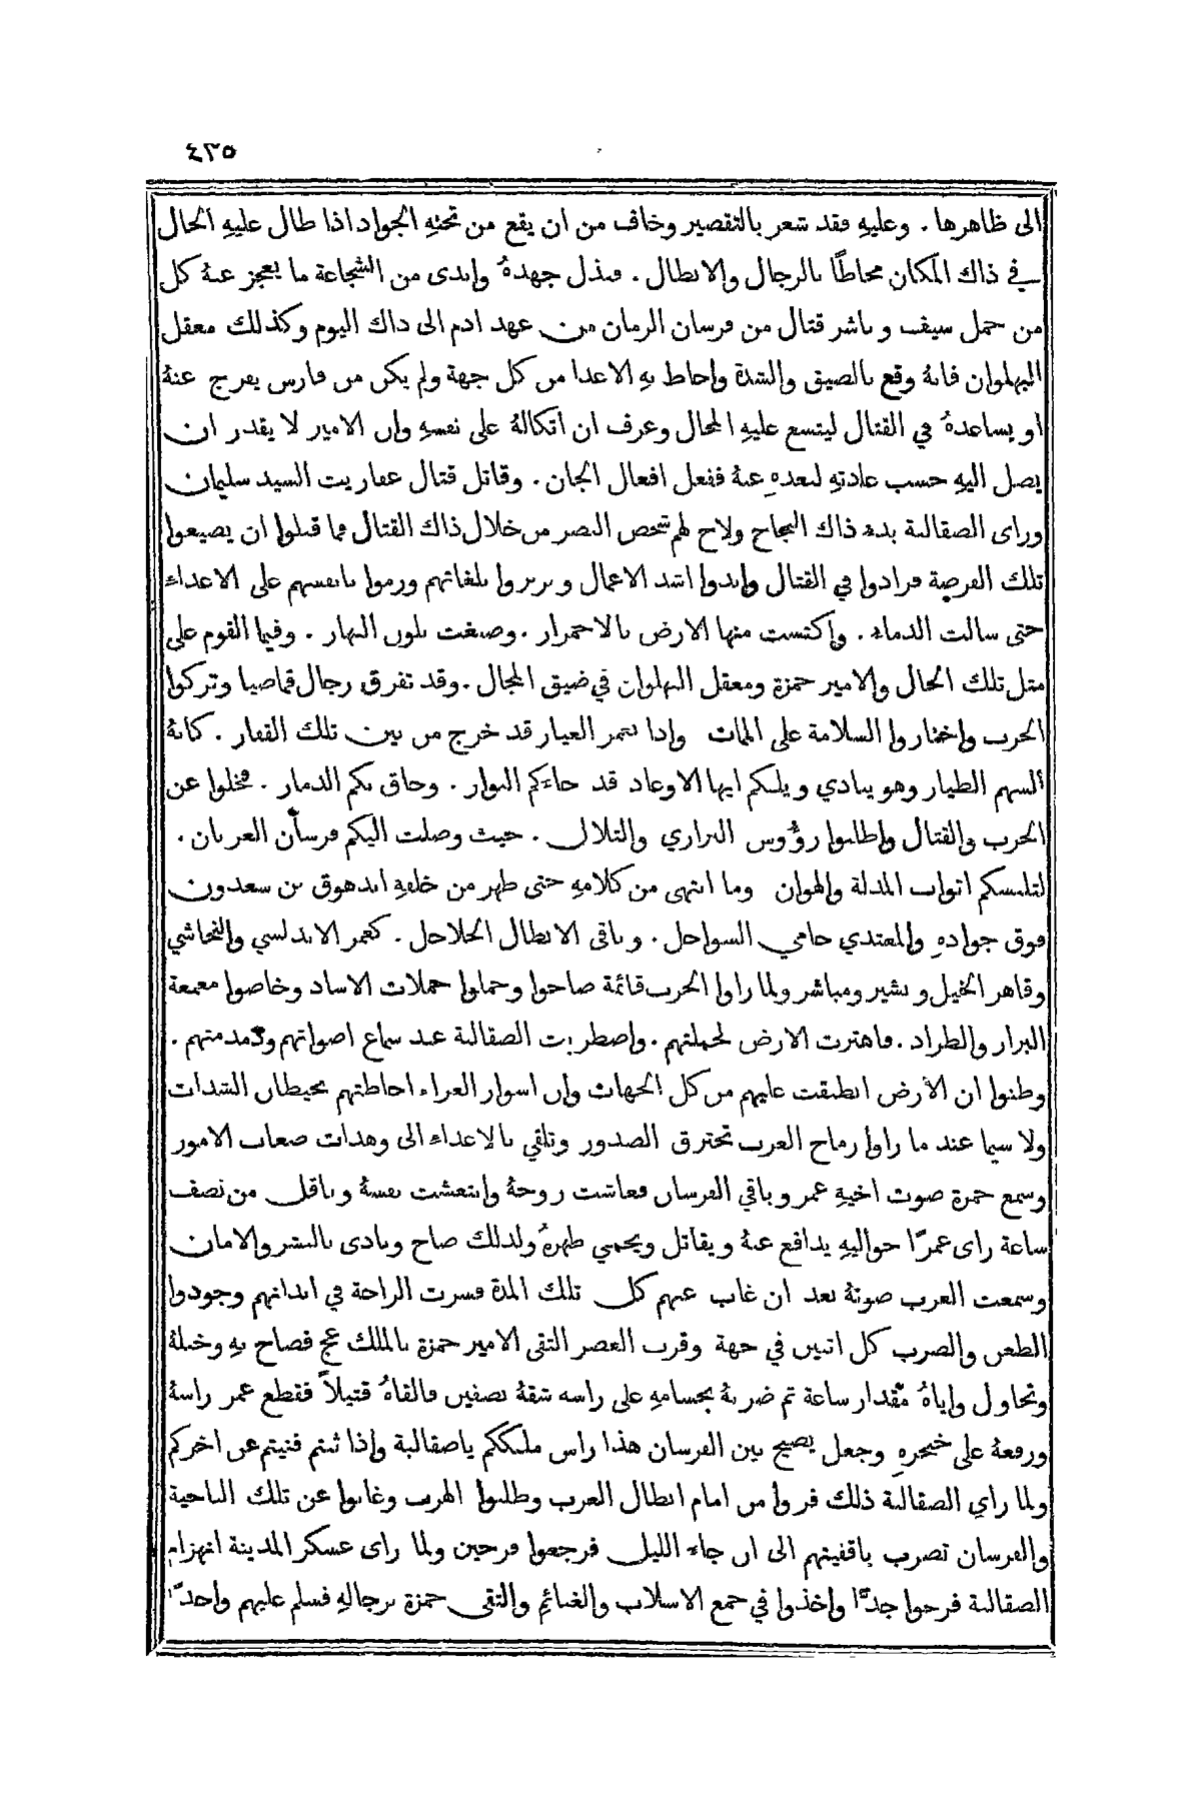 ٤٣٥
الى ظاهرها . وعليهِ فقد شعر بالتقصير وخاف من ان يقع من تحتهِ الجواد اذا طال عليهِ الحال
في ذاك المكان محاطًا بالرجال والابطال . فبذل جهدهُ وابدى من الشجاعة ما يعجز عنهُ كل
من حمل سيف وباشر قتال من فرسان الزمان من عهد ادم الى ذاك اليوم وكذلك معقل
البهلوان فانهُ وقع بالضيق والشدة واحاط بهِ الاعدا من كل جهة ولم يكن من فارس يفرج عنهُ
او يساعدهُ في القتال ليتسع عليهِ المجال وعرف ان اتكالهُ على نفسهِ وان الامير لا يقدر ان
يصل اليهِ حسب عادتهِ لبعدهِ عنهُ ففعل افعال الجان . وقاتل قتال عفاريت السيد سليمان
وراى الصقالبة بدء ذاك النجاح ولاح لهم شخص النصر من خلال ذاك القتال فما قبلوا ان يضيعوا
تلك الفرصة فزادوا في القتال وابدوا اشد الاعمال وبربروا بلغاتهم ورموا بانفسهم على الاعداء
حتى سالت الدماء . واكتست منها الارض بالاحمرار . وصبغت بلون البهار . وفيما القوم على
مثل تلك الحال والامير حمزة ومعقل البهلوان في ضيق المجال . وقد تفرق رجال قماصيا وتركوا
الحرب واختاروا السلامة على الممات واذا بعمر العيار قد خرج من بين تلك القفار . كانهُ
السهم الطيار وهو ينادي ويلكم ايها الاوغاد قد جاءكم البوار . وحاق بكم الدمار . فخلوا عن
الحرب والقتال واطلبوا رؤُوس البراري والتلال . حيث وصلت اليكم فرسان العربان .
لتلبسكم اثواب المذلة والهوان وما انتهى من كلامهِ حتى ظهر من خلفهِ اندهوق بن سعدون
فوق جوادهِ والمعتدي حامي السواحل . وباقي الابطال الحلاحل . كعمر الاندلسي والنجاشي
وقاهر الخيل وبشير ومباشر ولما راوا الحرب قائمة صاحوا وحملوا حملات الاساد وخاضوا معمعة
البراز والطراد . فاهتزت الارض لحملتهم . واضطربت الصقالبة عند سماع اصواتهم ودمدمتهم .
وظنوا ان الارض انطبقت عليهم من كل الجهات وان اسوار العراء احاطتهم بحيطان الشدات
ولا سيما عند ما راوا رماح العرب تخترق الصدور وتلقي بالاعداء الى وهدات صعاب الامور
وسمع حمزة صوت اخيهِ عمر وباقي الفرسان فعاشت روحهُ وانتعشت نفسهُ وباقل من نصف
ساعة راى عمرًا حواليهِ يدافع عنهُ ويقاتل ويحمي ظهرهُ ولذلك صاح ونادى بالبشر والامان
وسمعت العرب صوتهُ بعد ان غاب عنهم كل تلك المدة فسرت الراحة في ابدانهم وجودوا
الطعن والضرب كل اثنين في جهة وقرب العصر التقى الامير حمزة بالملك عج فصاح بهِ وخبلهُ
وتحاول واياهُ مقدار ساعة ثم ضربهُ بحسامهِ على راسهِ شقهُ نصفين فالقاهُ قتيلاً فقطع عمر راسهُ
ورفعهُ على خنجرهِ وجعل يصيح بين الفرسان هذا راس ملككم ياصقالبة واذا ثبتم فنيتم عن اخركم
ولما راي الصقالبة ذلك فروا من امام ابطال العرب وطلبوا الهرب وغابوا عن تلك الناحية
والفرسان تضرب باقفيتهم الى ان جاء الليل فرجعوا فرحين ولما راى عسكر المدينة انهزام
الصقالبة فرحوا جدًّا واخذوا في جمع الاسلاب والغنائمِ والتقى حمزة برجالهِ فسلم عليهم واحدًا